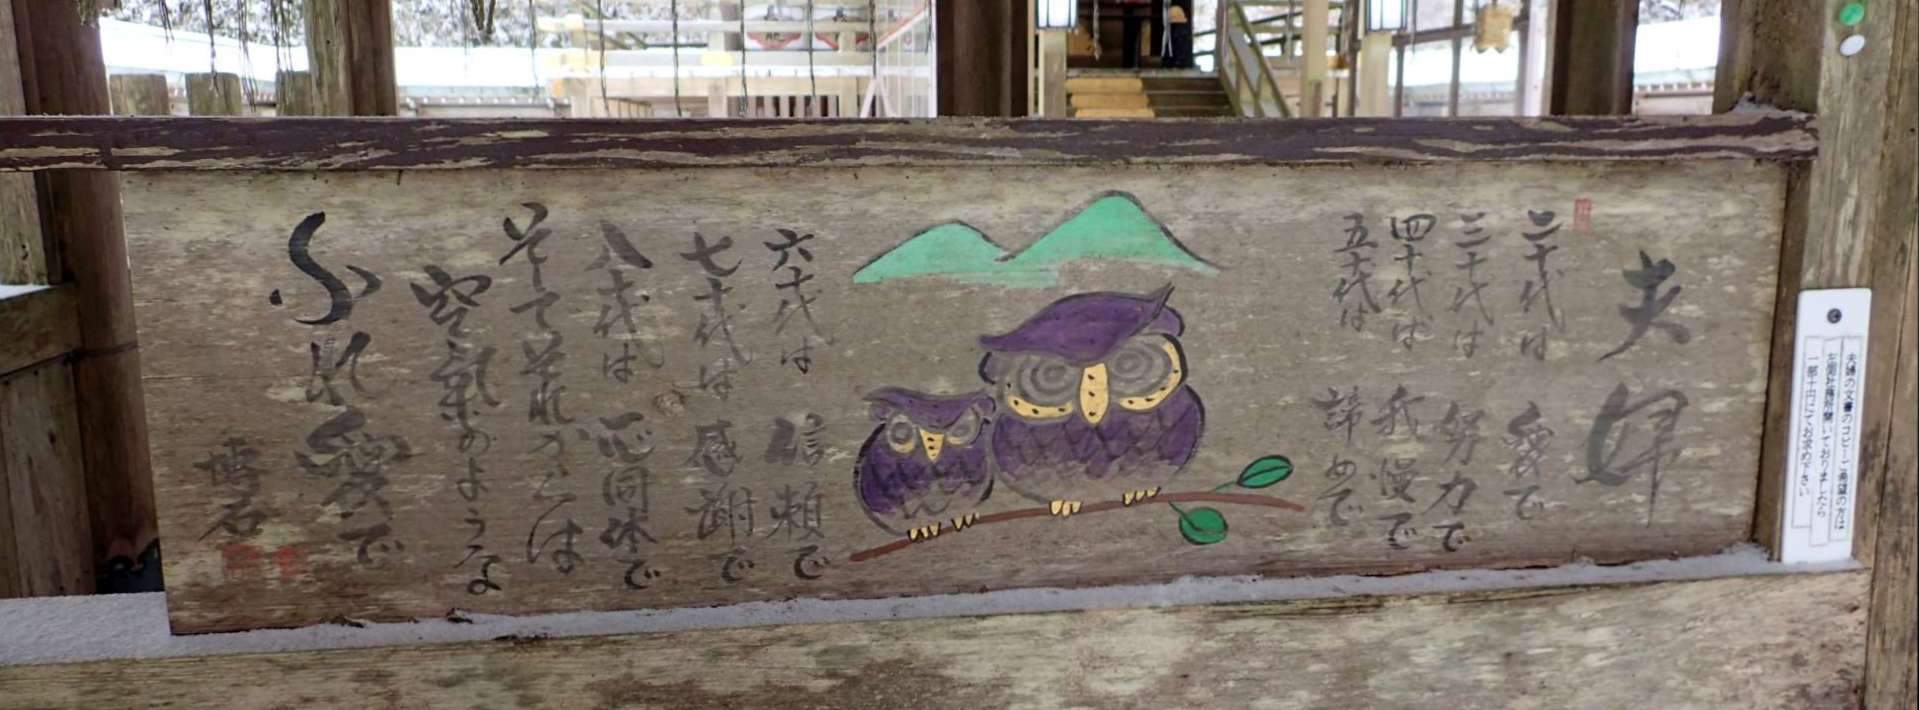 夫婦
二十代は 愛で
三十代は 努力で
四十代は 我慢で
五十代は 諦めで
六十代は 信頼で
七十代は 感謝で
八十代は 一心同体で
そして それからは
空氣のような
ふれ愛で
夫婦の文書のコピーご希望の方は
左側社務所開いておりましたら
一部十円にてお求め下さい